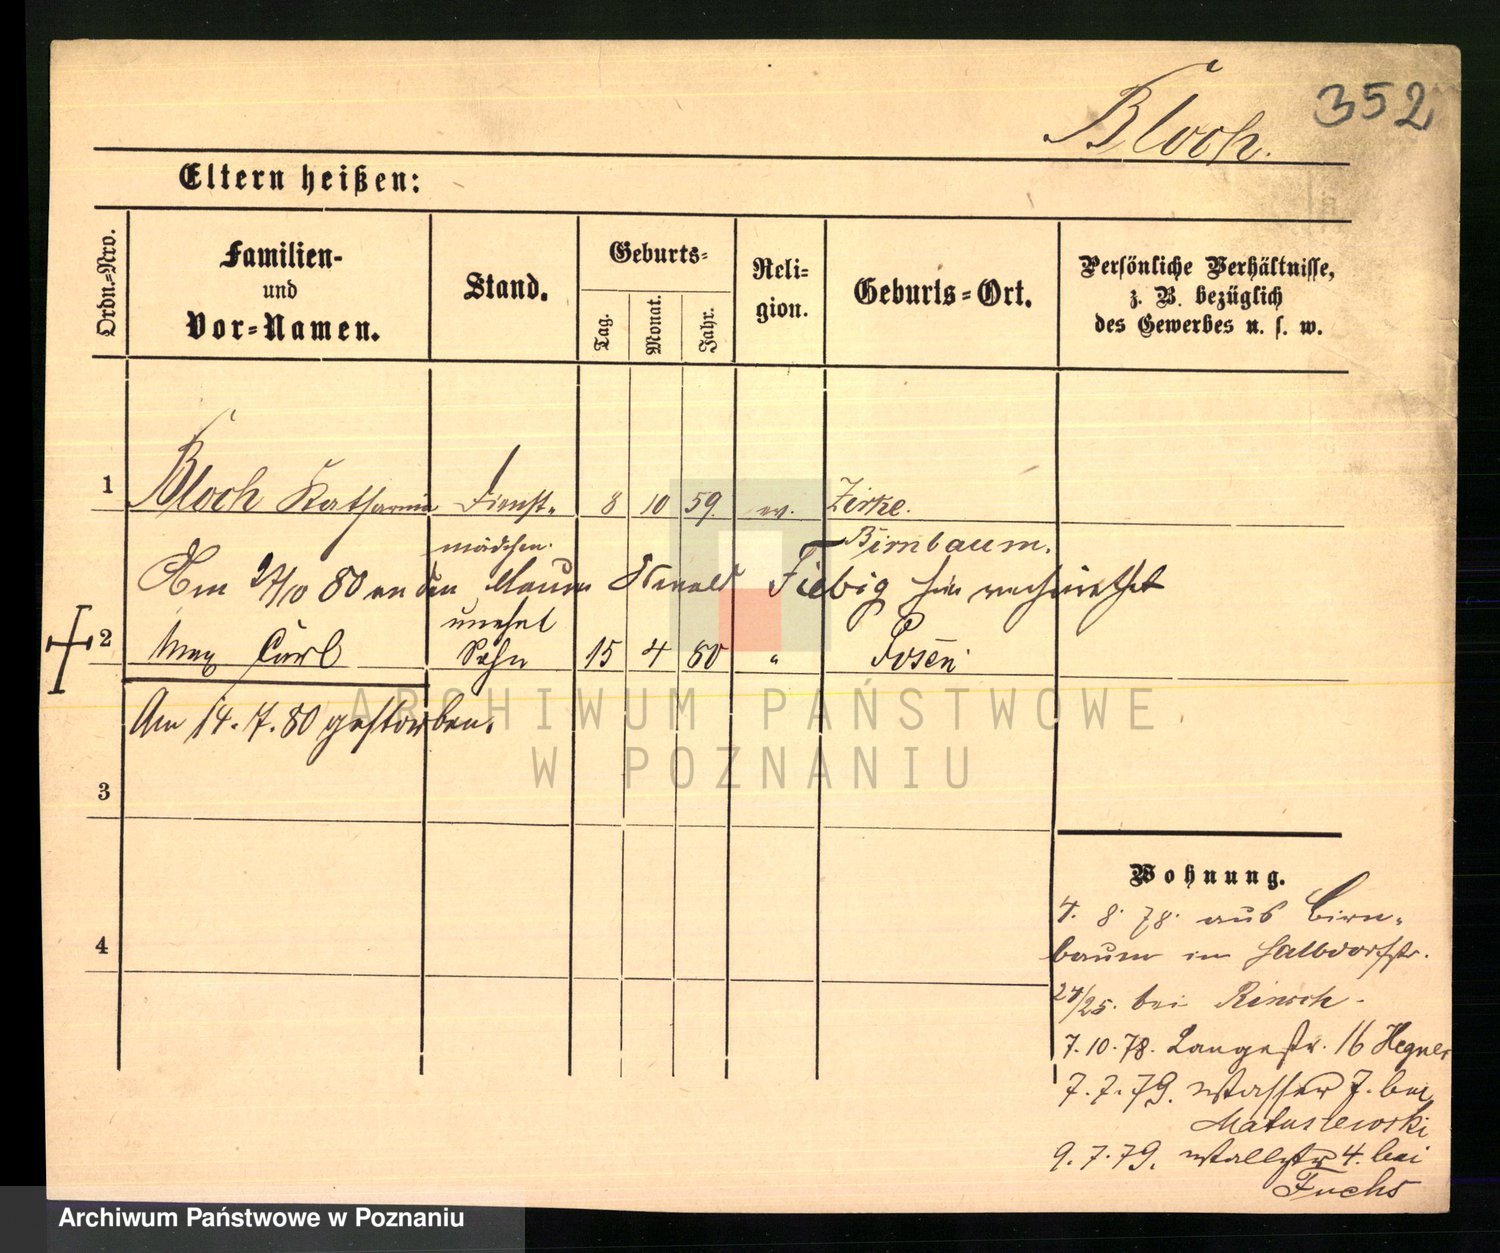 352
Bloch.
Eltern heißen:
Ordn.=Nro.
Familien-
und
Vor=Namen.
Stand.
Geburts=
Tag.
Monat.
Jahr.
Reli=
gion.
Geburts=Ort.
Persönliche Verhältnisse,
z. B. bezüglich
des Gewerbes u. s. w.
1 Bloch Katharina Dienst= 8 10 59. ev. Zirke.
mädchen. Birnbaum.
Am 27/10 80 an den Maurer Fiebig hier verheirathet
unehel
2 Max Carl Sohn 15 4 80 " Posen
Am 14.7.80 gestorben.
ARCHIWUM PAŃSTWOWE
W POZNANIU
3
4
Wohnung.
4. 8. 78. aus Birn=
baum in Halbdorfstr.
24/25. bei
7.10.78. Langestr. 16 Hegner
7.7.79. Wasser 7. bei
Matuszewski
9.7.79. Wallstr 4. bei
Fuchs
Archiwum Państwowe w Poznaniu